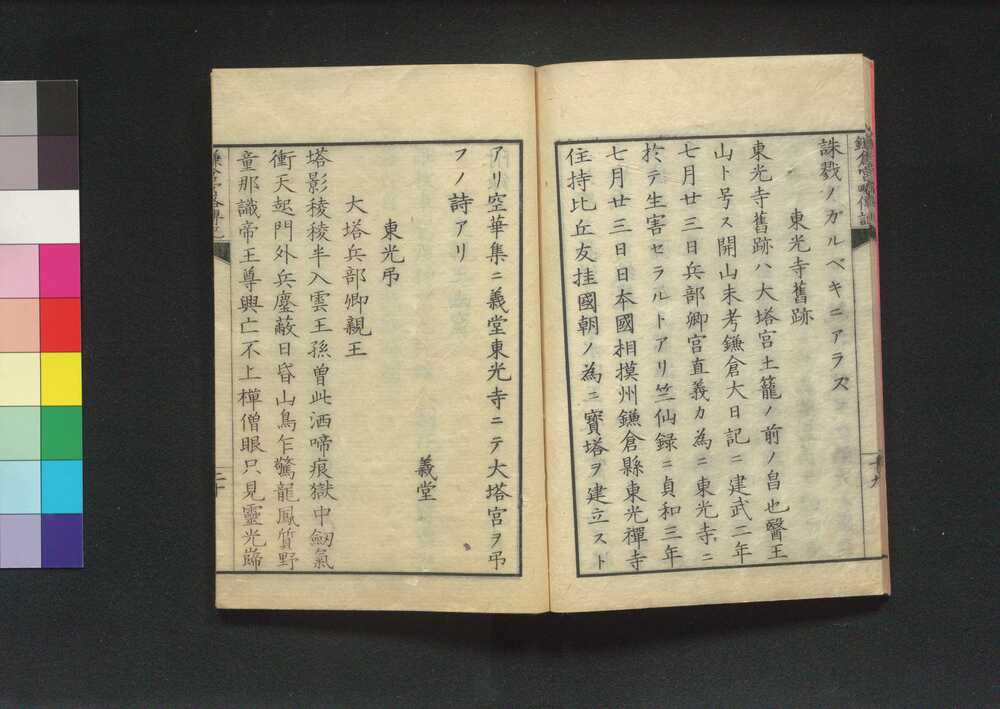 誅戮ノガルベキニアラズ
東光寺舊跡
東光寺舊跡ハ大塔宮土籠ノ前ノ畠也醫王
山ト号ス開山未考鎌倉大日記ニ建武二年
七月廿三日兵部卿宮直義カ為ニ東光寺ニ
於テ生害セラルトアリ竺仙録ニ貞和三年
七月廿三日日本國相摸州鎌倉縣東光禪寺
住持比丘友挂國朝ノ為ニ寳塔ヲ建立スト
十九
アリ空華集ニ義堂東光寺ニテ大塔宮ヲ弔
フノ詩アリ
義堂
東光弔
大塔兵部卿親王
塔影稜稜半入雲王孫曽此洒啼痕獄中劔氣
衝天起門外兵塵蔽日昏山鳥乍驚龍鳳質野
童那識帝王尊興亡不上樺僧眼只見靈光蹄
二十